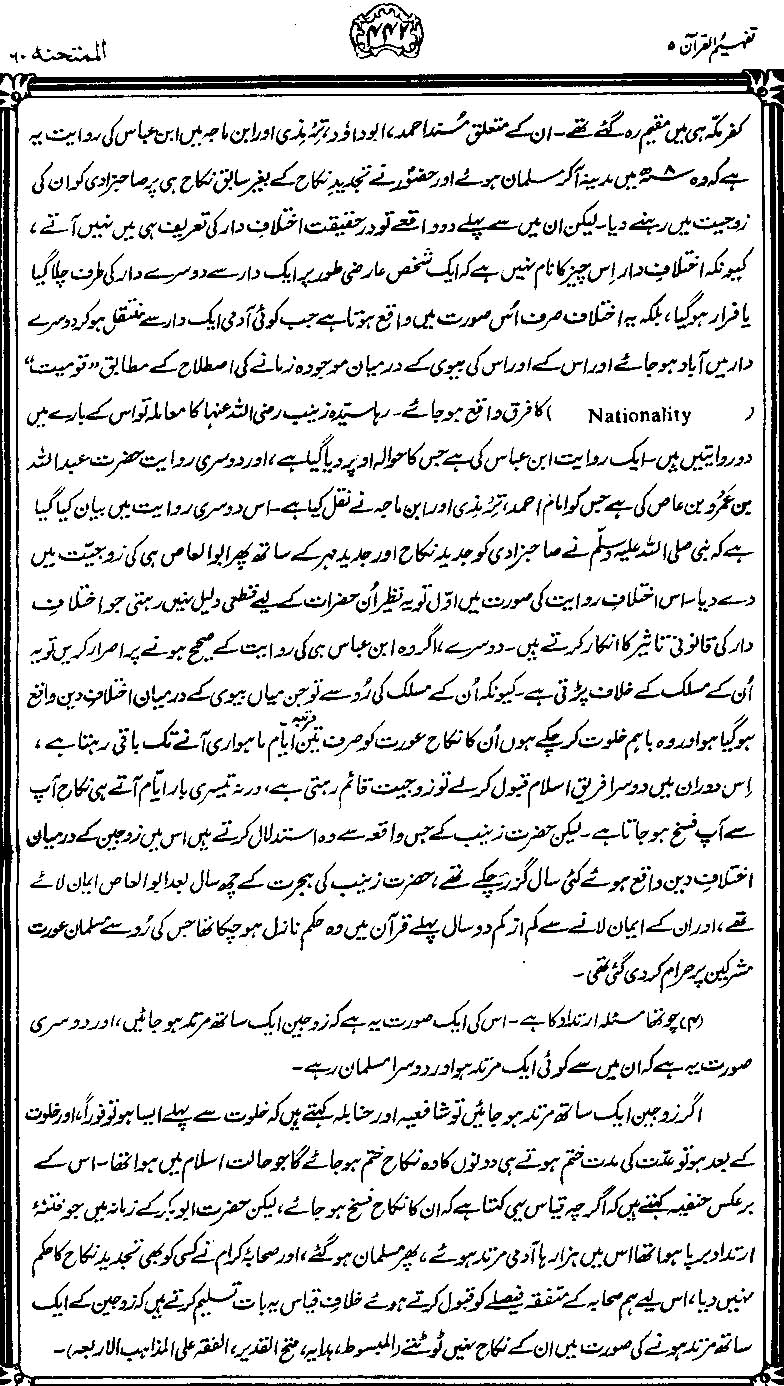 تفہیم القرآن ۵
۴۴۲
الممتحنہ ۶۰
کفر مکہ ہی میں مقیم رہ گئے تھے۔ ان کے متعلق مُسند احمد، ابوداؤد، تِرمذی اور ابن ماجہ میں ابن عباس کی روایت یہ
ہے کہ وہ ۸ھ میں مدینہ آکر مسلمان ہوئے اور حضورؐ نے تجدیدِ نکاح کے بغیر سابق نکاح ہی پر صاحبزادی کو ان کی
زوجیت میں رہنے دیا۔ لیکن ان میں سے پہلے دو واقعے تو درحقیقت اختلافِ دار کی تعریف ہی میں نہیں آتے،
کیونکہ اختلافِ دار اِس چیز کا نام نہیں ہے کہ ایک شخص عارضی طور پر ایک دار سے دوسرے دار کی طرف چلا گیا
یا فرار ہو گیا، بلکہ یہ اختلاف صرف اُس صورت میں واقع ہوتا ہے جب کوئی آدمی ایک دار سے منتقل ہو کر دوسرے
دار میں آباد ہو جائے اور اس کے اور اس کی بیوی کے درمیان موجودہ زمانے کی اصطلاح کے مطابق ”قومیت“
(Nationality) کا فرق واقع ہو جائے۔ رہا سیّدہ زینب رضی اللہ عنہا کا معاملہ تو اس کے بارے میں
دو روایتیں ہیں۔ ایک روایت ابن عباس کی ہے جس کا حوالہ اوپر دیا گیا ہے، اور دوسری روایت حضرت عبداللہ
بن عَمرو بن عاص کی ہے جس کو امام احمد، تِرمذی اور ابن ماجہ نے نقل کیا ہے۔ اس دوسری روایت میں بیان کیا گیا
ہے کہ نبی صلی اللہ علیہ وسلّم نے صاحبزادی کو جدید نکاح اور جدید مہر کے ساتھ پھر ابوالعاص ہی کی زوجیّت میں
دے دیا۔ اس اختلافِ روایت کی صورت میں اوّل تو یہ نظیر اُن حضرات کے لیے قطعی دلیل نہیں رہتی جو اختلافِ
دار کی قانونی تاثیر کا انکار کرتے ہیں۔ دوسرے، اگر وہ ابن عباس ہی کی روایت کے صحیح ہونے پر اصرار کریں تو یہ
اُن کے مسلک کے خلاف پڑتی ہے۔ کیونکہ اُن کے مسلک کی رُو سے تو جن میاں بیوی کے درمیان اختلافِ دین واقع
ہو گیا ہو اور وہ باہم خلوت کر چکے ہوں اُن کا نکاح عورت کو صرف تین مرتبہ ایّامِ ماہواری آنے تک باقی رہتا ہے،
اِس دوران میں دوسرا فریق اسلام قبول کر لے تو زوجیت قائم رہتی ہے، ورنہ تیسری بار ایّام آتے ہی نکاح آپ
سے آپ فسخ ہو جاتا ہے۔ لیکن حضرت زینب کے جس واقعہ سے وہ استدلال کرتے ہیں اس میں زوجین کے درمیان
اختلافِ دین واقع ہوئے کئی سال گزر چکے تھے، حضرت زینب کی ہجرت کے چھ سال بعد ابوالعاص ایمان لائے
تھے، اور ان کے ایمان لانے سے کم از کم دو سال پہلے قرآن میں وہ حکم نازل ہو چکا تھا جس کی رُو سے مسلمان عورت
مشرکین پر حرام کر دی گئی تھی۔
(۴) چوتھا مسئلہ ارتداد کا ہے۔ اس کی ایک صورت یہ ہے کہ زوجین ایک ساتھ مرتد ہو جائیں، اور دوسری
صورت یہ ہے کہ ان میں سے کوئی ایک مرتد ہو اور دوسرا مسلمان رہے۔
اگر زوجین ایک ساتھ مرتد ہو جائیں تو شافعیہ اور حنابلہ کہتے ہیں کہ خلوت سے پہلے ایسا ہو تو فوراً، اور خلوت
کے بعد ہو تو عدّت کی مدت ختم ہوتے ہی دونوں کا وہ نکاح ختم ہو جائے گا جو حالتِ اسلام میں ہوا تھا۔ اس کے
برعکس حنفیہ کہتے ہیں کہ اگرچہ قیاس یہی کہتا ہے کہ ان کا نکاح فسخ ہو جائے، لیکن حضرت ابوبکر کے زمانہ میں جو فتنۂ
ارتداد برپا ہوا تھا اس میں ہزارہا آدمی مرتد ہوئے، پھر مسلمان ہو گئے، اور صحابۂ کرام نے کسی کو بھی تجدیدِ نکاح کا حکم
نہیں دیا، اس لیے ہم صحابہ کے متفقہ فیصلے کو قبول کرتے ہوئے خلافِ قیاس یہ بات تسلیم کرتے ہیں کہ زوجین کے ایک
ساتھ مرتد ہونے کی صورت میں ان کے نکاح نہیں ٹوٹتے (المبسوط، ہدایہ، فتح القدیر، الفقہ علی المذاہب الاربعہ)۔